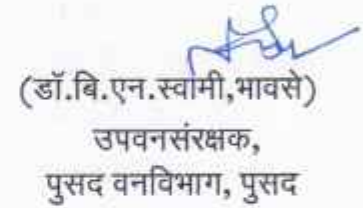 (डॉ.बि.एन.स्वामी,भावसे)
उपवनसंरक्षक,
पुसद वनविभाग, पुसद